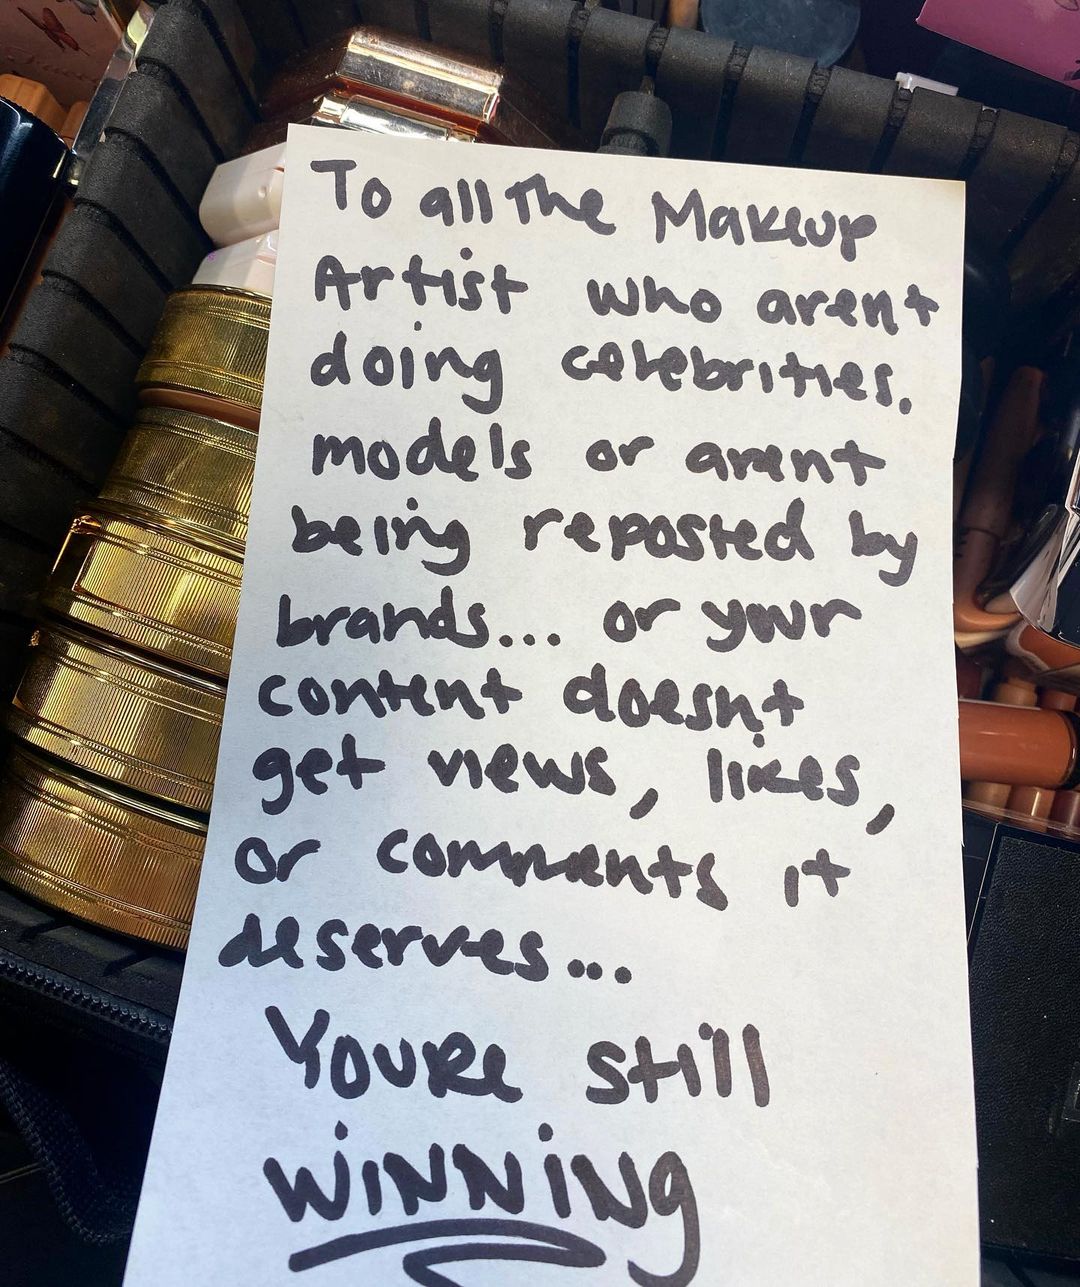 To all the Makeup
Artist who arent
doing celebrities.
models or arent
being reposted by
brands... or your
content doesnt
get views, likes,
or comments it
deserves...
Youre still
WINNING